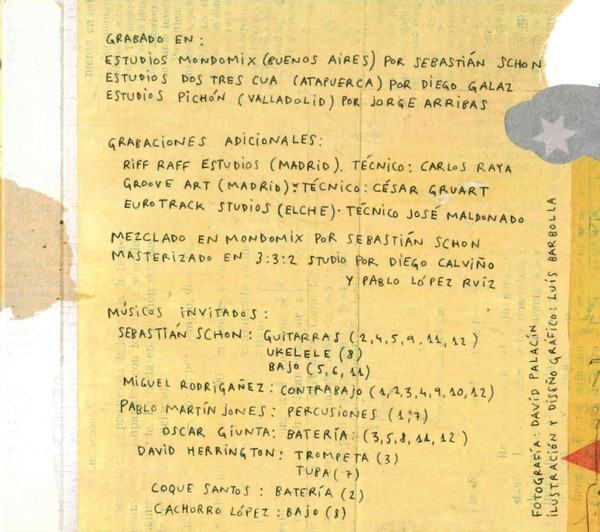 GRABADO EN:
ESTUDIOS MONDOMIX (BUENOS AIRES) POR SEBASTIÁN SCHON
ESTUDIOS DOS TRES CUA (ATAPUERCA) POR DIEGO GALAZ
ESTUDIOS PICHÓN (VALLADOLID) POR JORGE ARRIBAS
GRABACIONES ADICIONALES:
RIFF RAFF ESTUDIOS (MADRID). TÉCNICO: CARLOS RAYA
GROOVE ART (MADRID): TÉCNICO: CÉSAR GRUART
EUROTRACK STUDIOS (ELCHE). TÉCNICO JOSÉ MALDONADO
MEZCLADO EN MONDOMIX POR SEBASTIÁN SCHON
MASTERIZADO EN 3:3:2 STUDIO POR DIEGO CALVIÑO
Y PABLO LÓPEZ RUÍZ
MÚSICOS INVITADOS:
SEBASTIÁN SCHON: GUITARRAS (2,4,5,9,11,12)
UKELELE (8)
BAJO (5,6,11)
MIGUEL RODRIGÁÑEZ: CONTRABAJO (1,2,3,4,9,10,12)
PABLO MARTÍN JONES: PERCUSIONES (1,7)
OSCAR GIUNTA: BATERÍA: (3,5,8,11,12)
DAVID HERRINGTON: TROMPETA (3)
TUBA (7)
COQUE SANTOS: BATERÍA (2)
CACHORRO LÓPEZ: BAJO (8)
FOTOGRAFÍA: DAVID PALACÍN
ILUSTRACIÓN Y DISEÑO GRÁFICO: LUÍS BARBOLLA